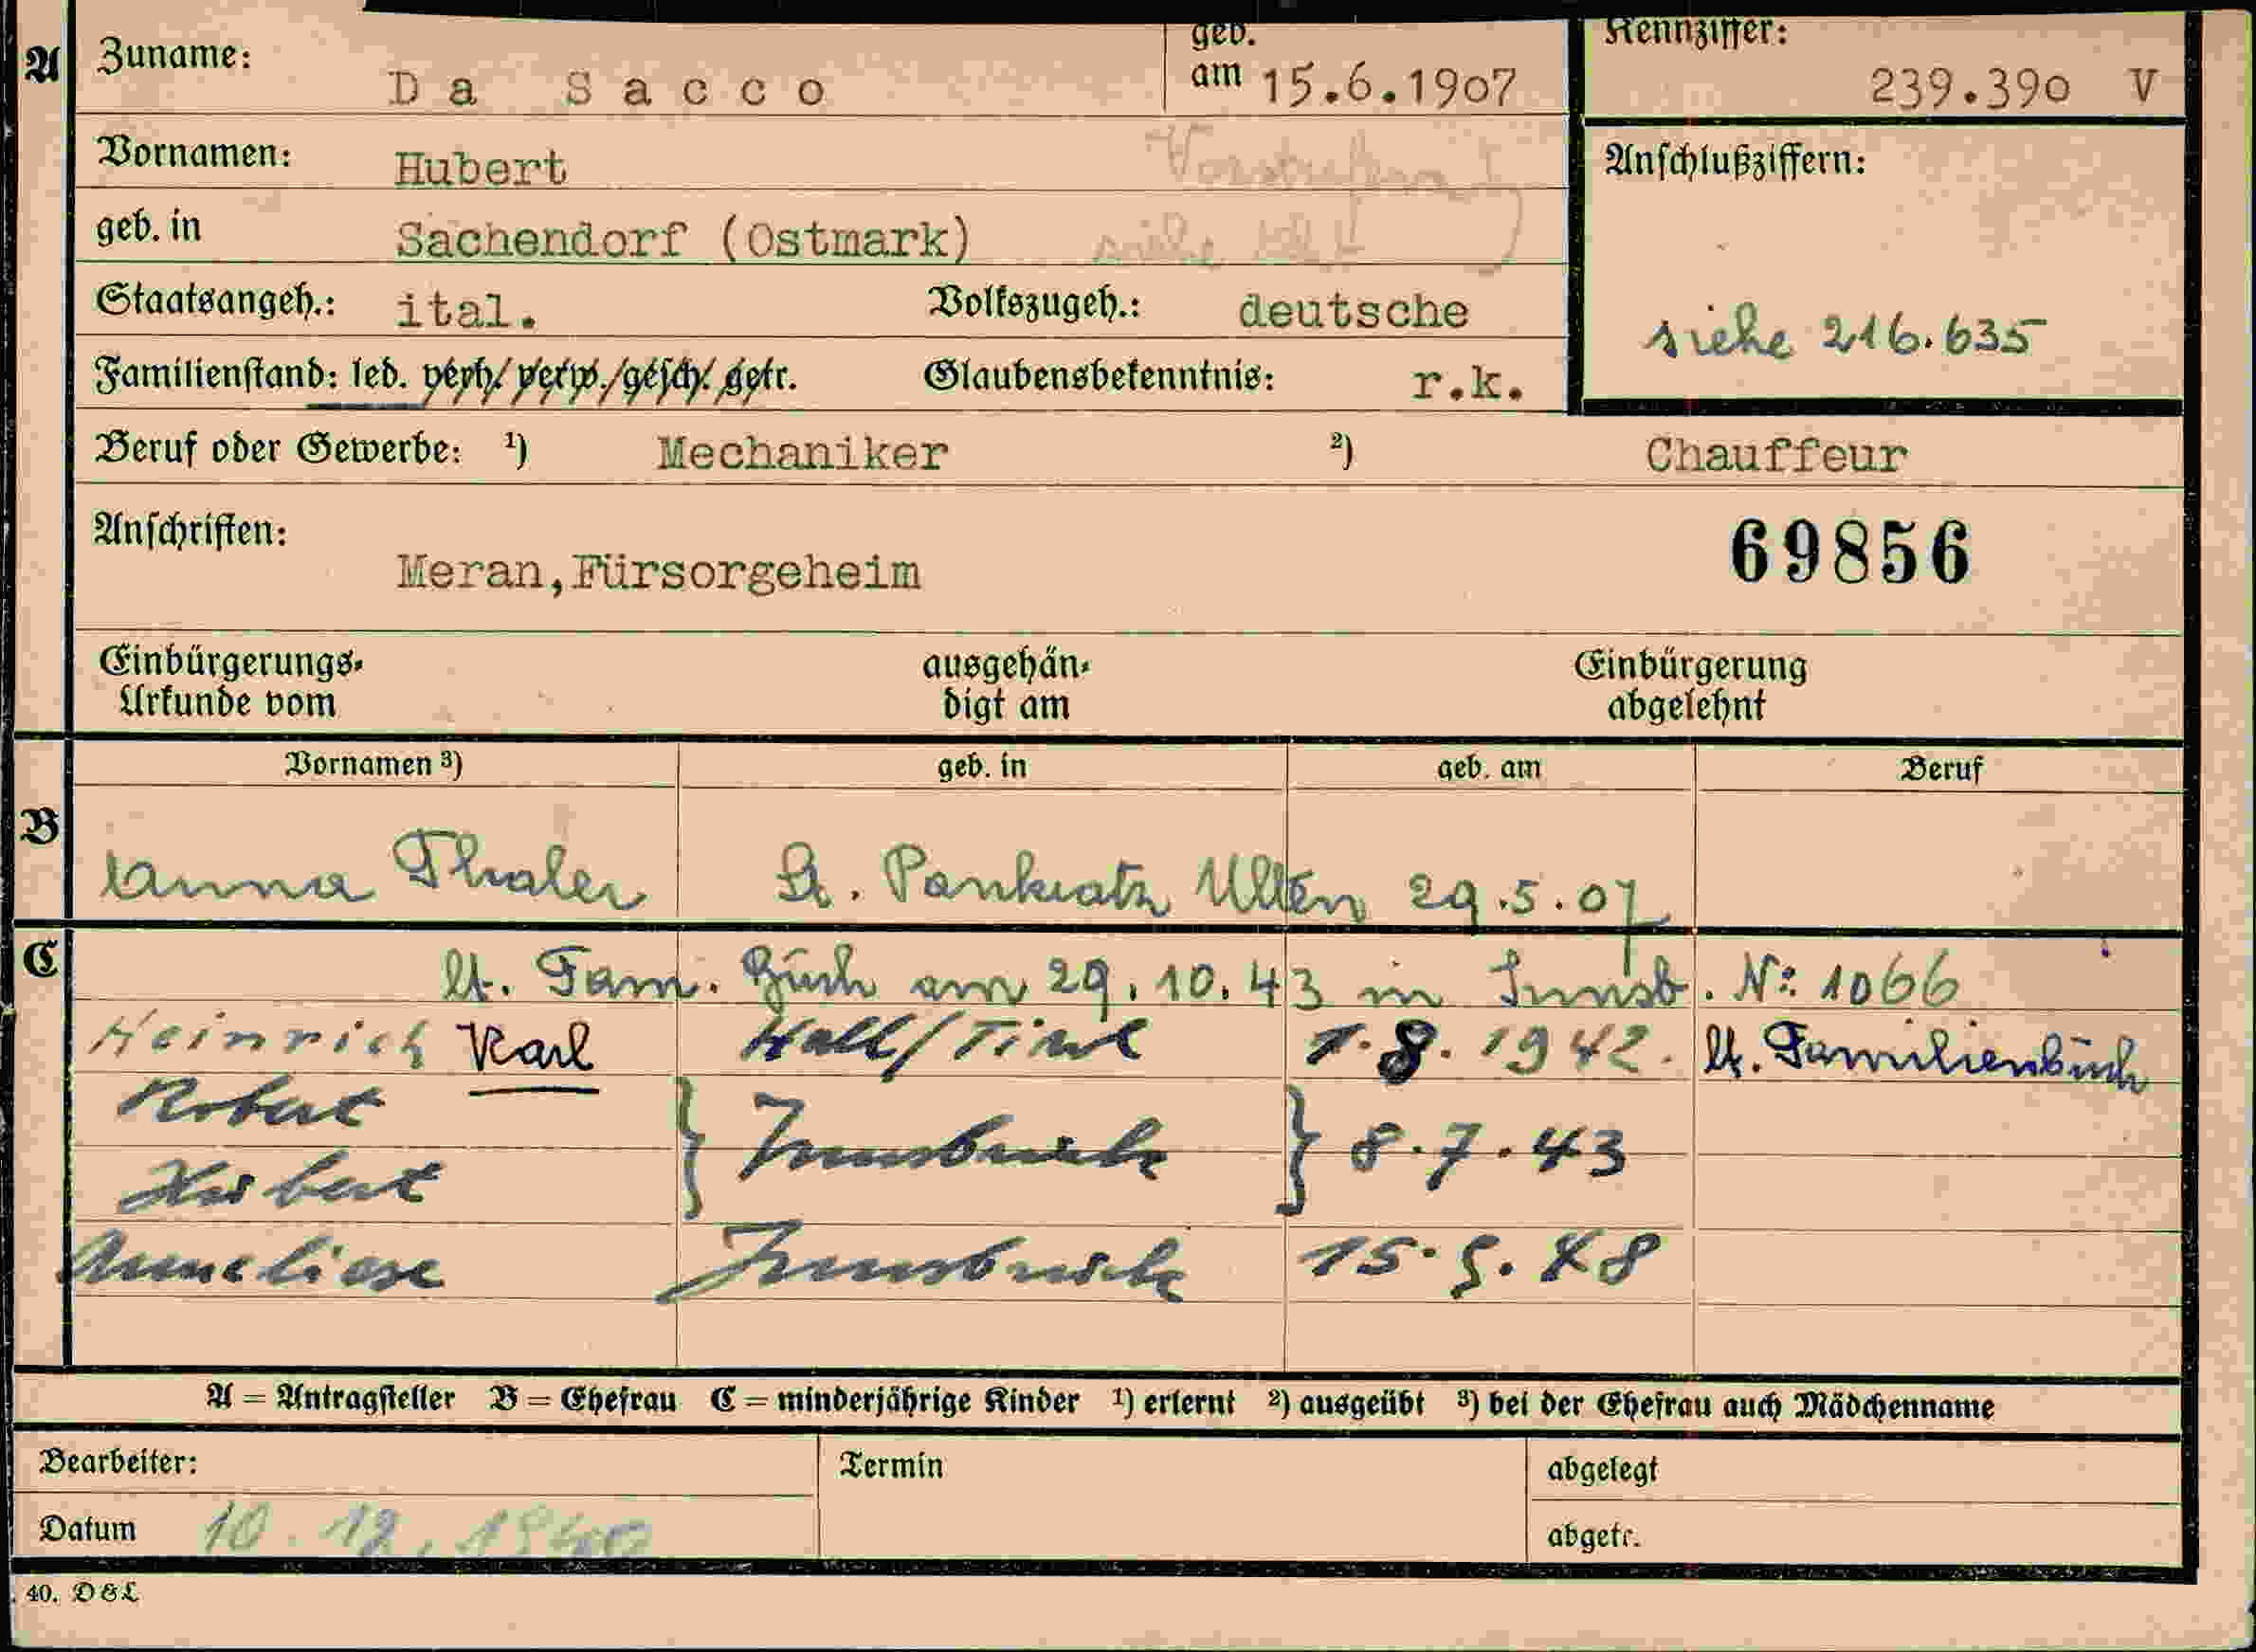 A Zuname: Da Sacco geb. am 15.6.1907 Kennziffer: 239.390 V
Vornamen: Hubert Anschlußziffern:
geb. in Sachendorf (Ostmark) siehe
Staatsangeh.: ital. Volkszugeh.: deutsche siehe 216.635
Familienstand: led. verh./verw./gesch./getr. Glaubensbekenntnis: r.k.
Beruf oder Gewerbe: ¹) Mechaniker ²) Chauffeur
Anschriften: 69856
Meran,Fürsorgeheim
Einbürgerungs- ausgehän- Einbürgerung
Urkunde vom digt am abgelehnt
Vornamen ³) geb. in geb. am Beruf
B Anna Thaler St. Pankratz Ulten 29.5.07
C lt. Fam. Buch am 29.10.43 in Innsb. No: 1066
Heinrich Karl Hall/Tirol 1.8.1942. lt. Familienbuch
Robert
} Innsbruck } 8.7.43
Herbert
Anneliese Innsbruck 15.5.48
A = Antragsteller B = Ehefrau C = minderjährige Kinder ¹) erlernt ²) ausgeübt ³) bei der Ehefrau auch Mädchenname
Bearbeiter: Termin abgelegt
Datum 10.12.1940 abgetr.
40. D&L